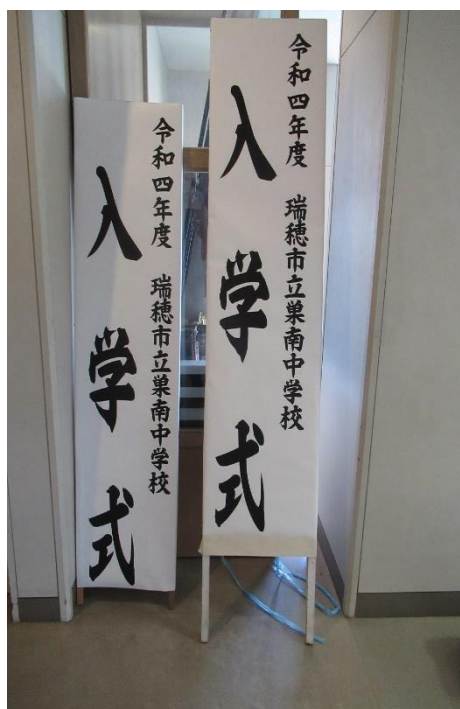 令和四年度 瑞穂市立巣南中学校
入学式
令和四年度 瑞穂市立巣南中学校
入学式